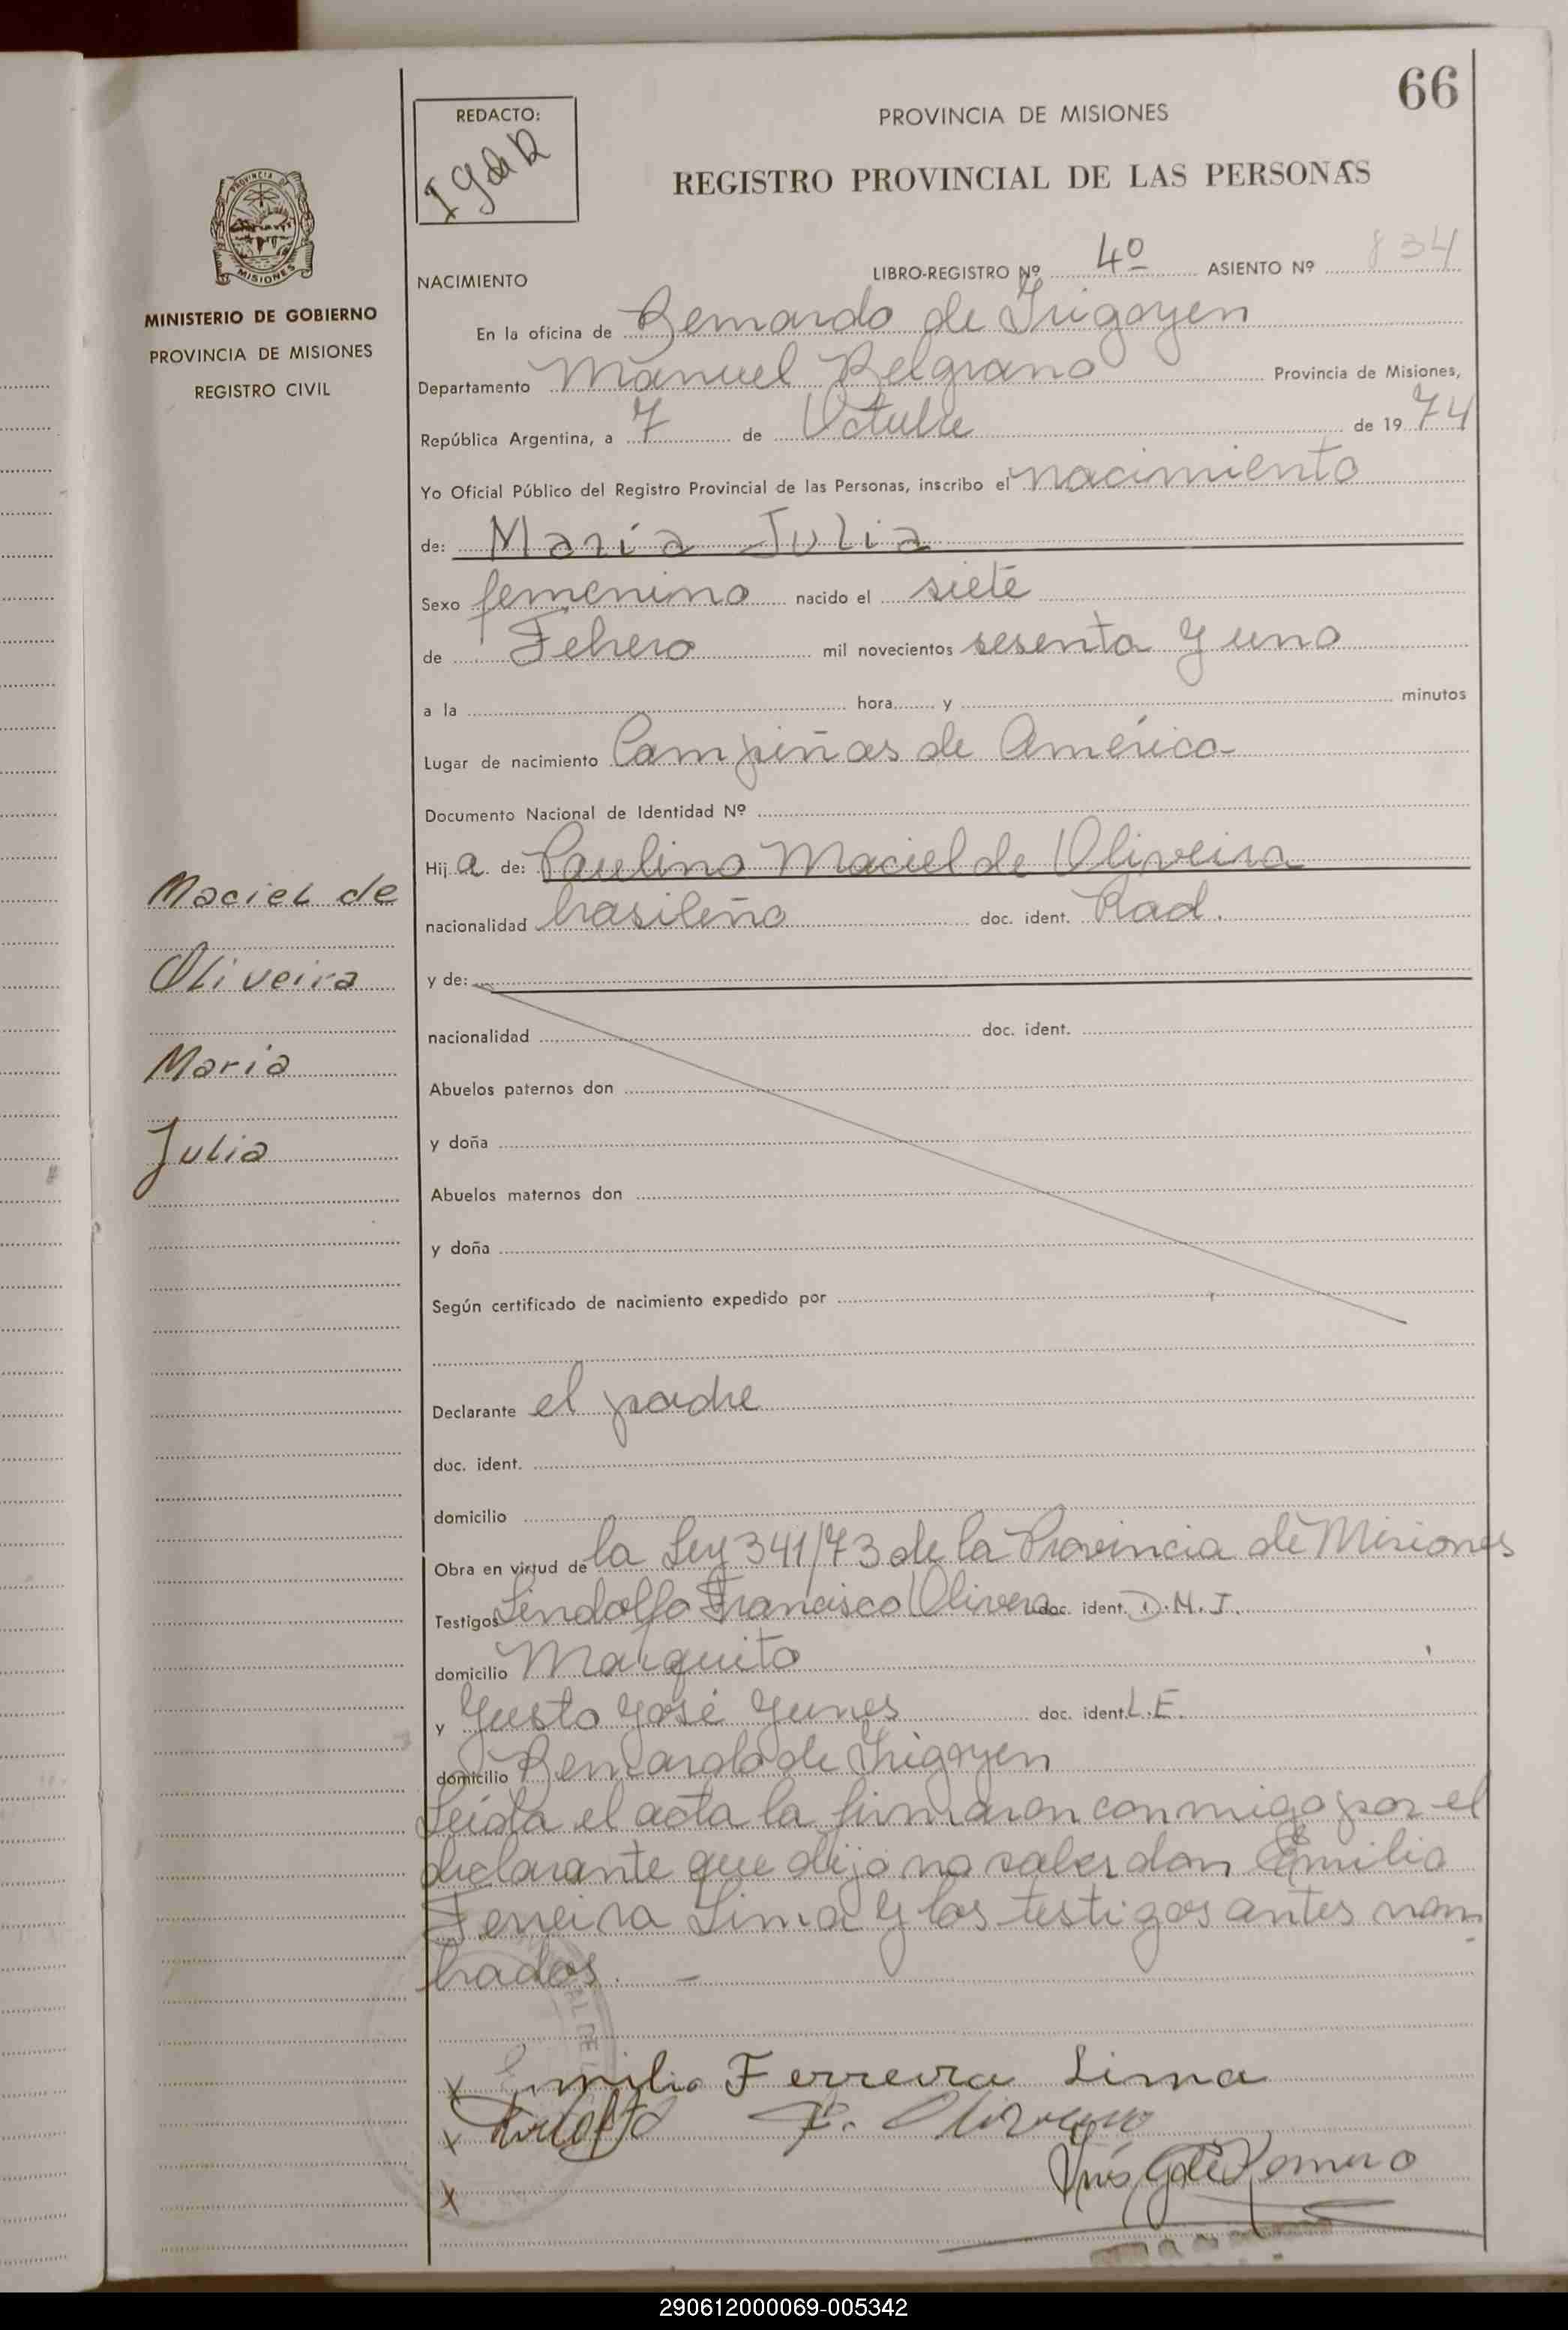 66
REDACTO:
I G de R
PROVINCIA DE MISIONES
REGISTRO PROVINCIAL DE LAS PERSONAS
PROVINCIA DE
MISIONES
MINISTERIO DE GOBIERNO
PROVINCIA DE MISIONES
REGISTRO CIVIL
LIBRO-REGISTRO Nº 4º ASIENTO Nº 834
NACIMIENTO
En la oficina de Bernardo de Irigoyen
Departamento Manuel Belgrano Provincia de Misiones,
República Argentina, a 7 de Octubre de 1974
Yo Oficial Público del Registro Provincial de las Personas, inscribo el nacimiento
de: María Julia
Sexo femenino nacido el siete
de Febrero mil novecientos sesenta y uno
a la hora y minutos
Lugar de nacimiento Campiñas de América
Documento Nacional de Identidad Nº
Hija de: Paulino Maciel de Oliveira
nacionalidad brasileño doc. ident. Rad.
y de:
nacionalidad doc. ident.
Abuelos paternos don
y doña
Abuelos maternos don
y doña
Según certificado de nacimiento expedido por
Maciel de
Oliveira
Maria
Julia
Declarante el padre
doc. ident.
domicilio
Obra en virtud de la Ley 341/73 de la Provincia de Misiones
Testigos Lindolfo Francisco Olivera doc. ident. D.N.I.
domicilio Marquito
y Justo José Yunes doc. ident. L.E.
domicilio Bernardo de Irigoyen
Leída el acta la firmaron conmigo por el
declarante que dijo no saber don Emilio
Ferreira Lima y los testigos antes nom
brados. -
x Emilio Ferreira Lima
x F. Olivera
Inés G de Romero
x
290612000069-005342